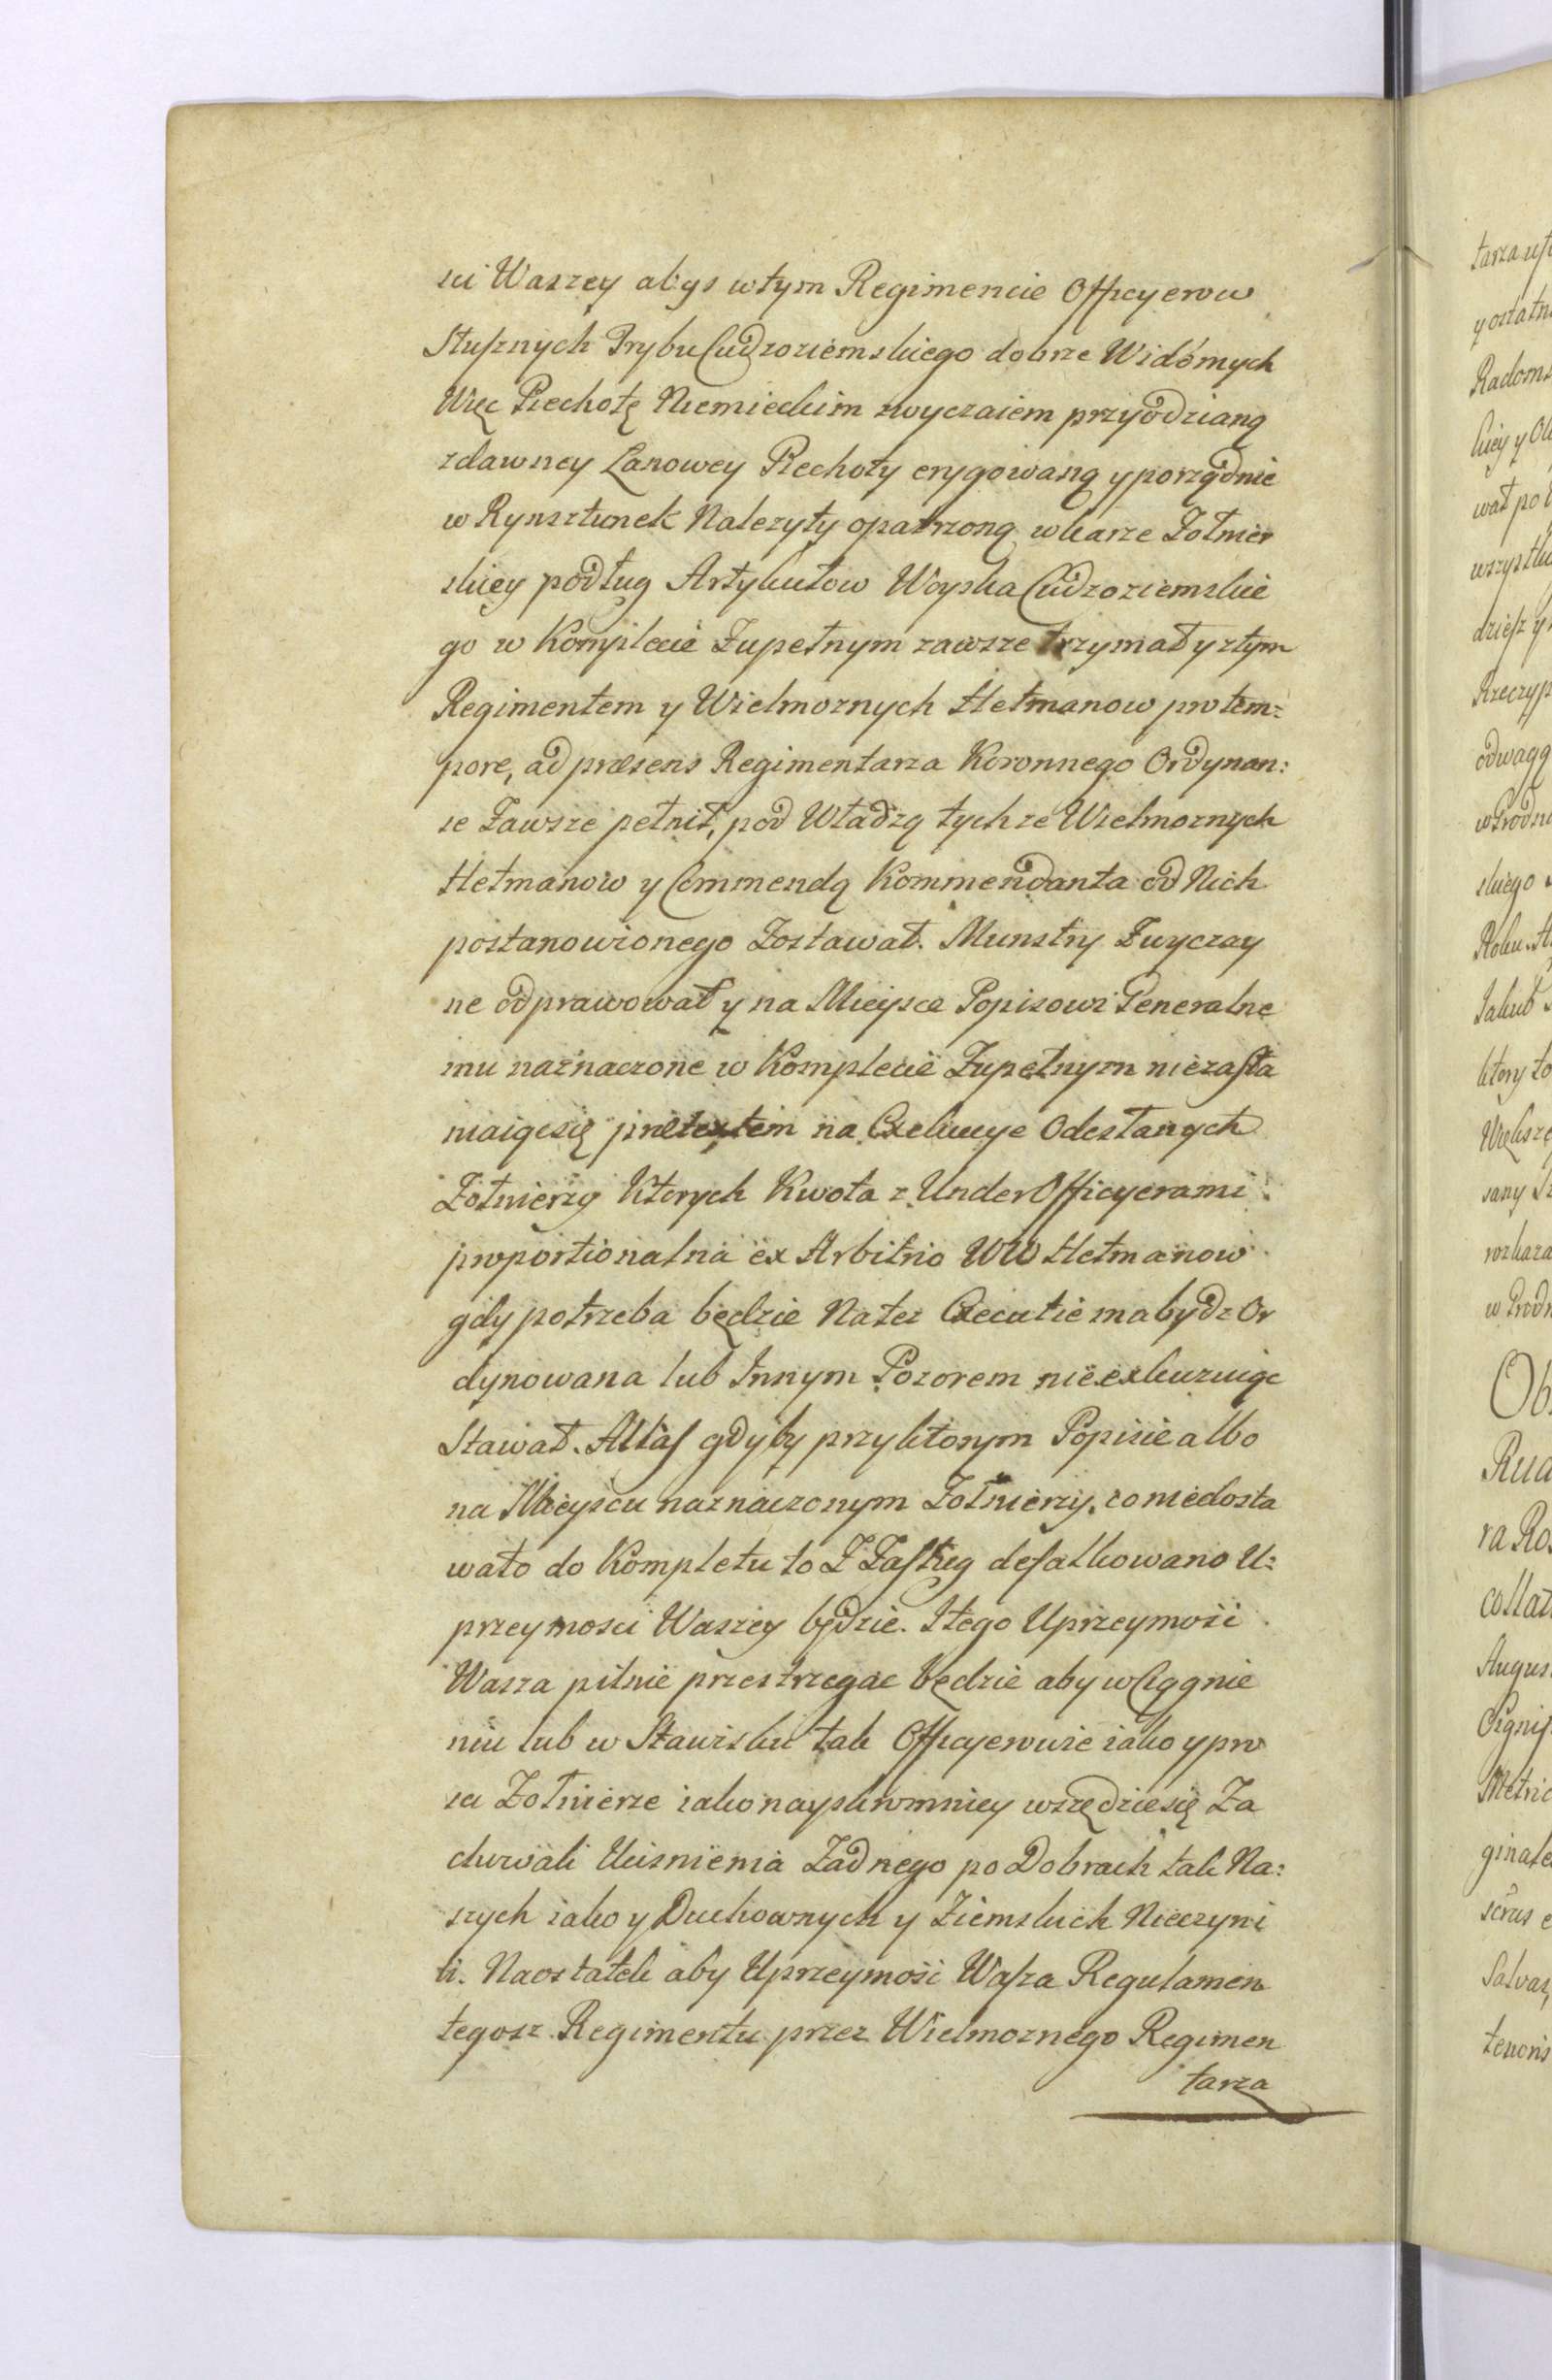 sci Waszey abys w tym Regimencie Officyerow
Słusznych Trybu Cudzoziemskiego dobrze Widómych
Więc Piechotę Niemieckim zwyczaiem przyodzianą
zdawney Łanowey Piechoty erygowaną y porządnie
w Rynsztunek Nalezyty opatrzoną w karze Zołnier
skiey podług Artykułow Woyska Cudzoziemskie
go w Komplecie Zupełnym zawsze trzymał y z tym
Regimentem y Wielmoznych Hetmanow pro tem:
pore, ad præsens Regimentarza Koronnego Ordynan:
se Zawsze pełnił, pod Władzą tychze Wielmoznych
Hetmanow y Commendą Kommendanta od Nich
postanowionego Zostawał. Munstry Zwyczay
ne odprawował y na Mieysce Popisowi Generalne
mu naznaczone w Komplecie Zupełnym niezasła
niaiącsię prætextem na Exekucye Odesłanych
Zołnierzy Ktorych Kwota z UnderOfficyerami
proportionalna ex Arbitrio WW Hetmanow
gdy potrzeba będzie Natez Executie ma bydz Or
dynowana lub Innym Pozorem nieexkuzuiąc
Stawał. Alias gdyby przyktorym Popisie albo
na Mieyscu naznaczonym Zołnierzy, co niedosta
wało do Kompletu to Z Zasług defalkowano U:
przeymosci Waszey będzie. Itego Uprzeymość
Wasza pilnie przestrzegac będzie aby w Ciągnie
niu lub w Stawisku tak Officyerowie iako y pro
sci Zołnierze iako nayskromniey wszędziesię Za
chowali Ucisnienia Zadnego po Dobrach tak Na:
szych iako y Duchownych y Ziemskich Nieczyni
li. Naostatek aby Uprzeymość Wasza Regulamen
tegosz Regimentu przez Wielmoznego Regimen
tarza